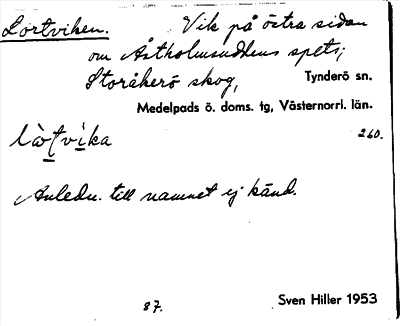 Lortviken. Vik på östra sidan
om Åstholmsuddens spets;
Storåkerö skog, Tynderö sn.
Medelpads ö. doms. tg, Västernorrl. län.
260.
lòt̠vi̠ka
Anledn. till namnet ej känd.
87. Sven Hiller 1953